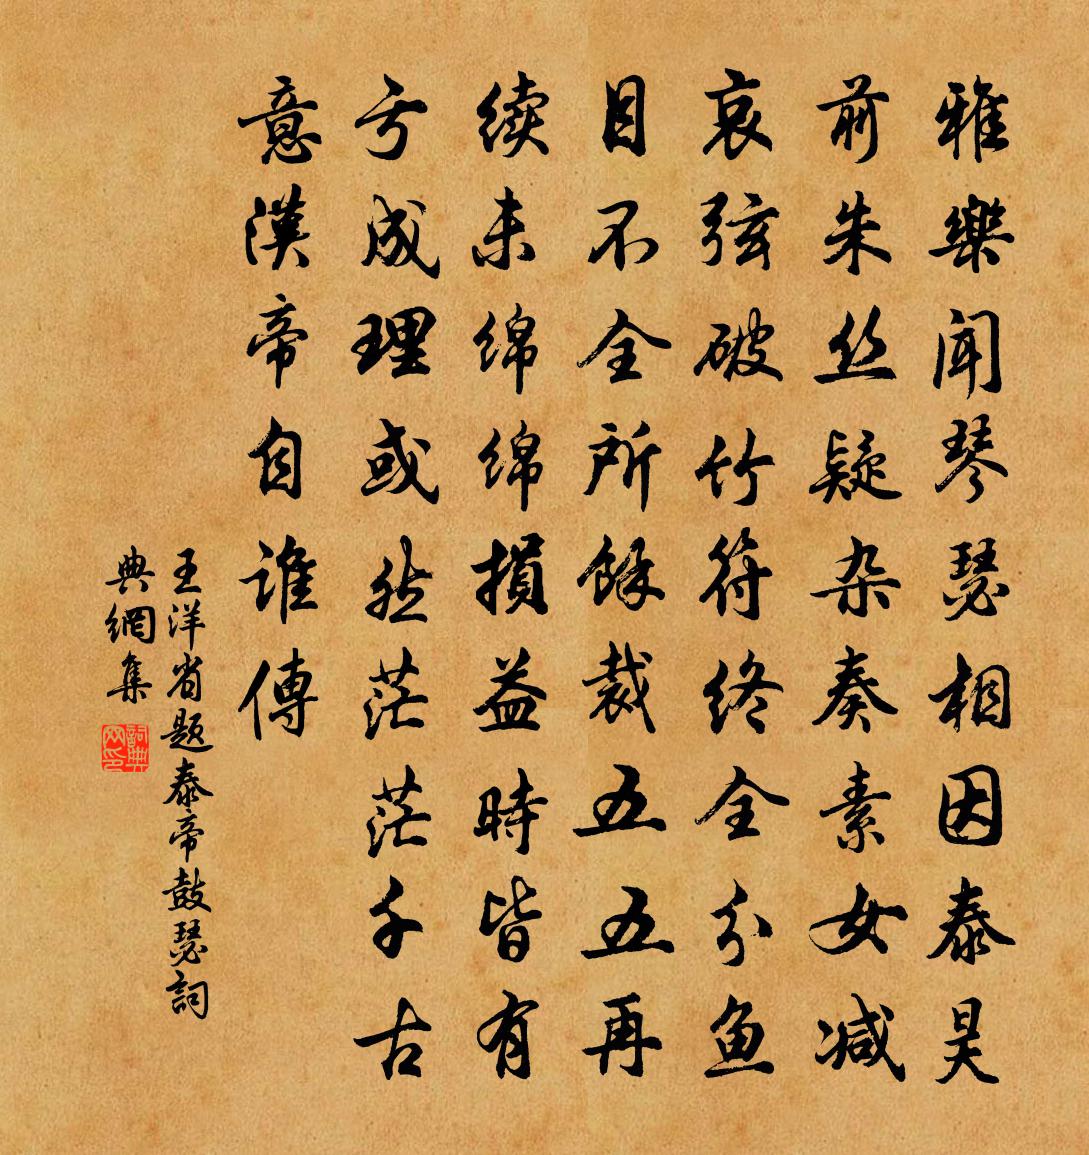 雅樂聞琴瑟相因泰昊
前朱丝疑杂奏素女减
哀弦破竹符终全分鱼
目不全所餘裁五五再
续未绵绵損益時皆有
亏成理或然茫茫千古
意漢帝自誰傳
王洋省题泰帝鼓瑟詞
典網集
詞典网印